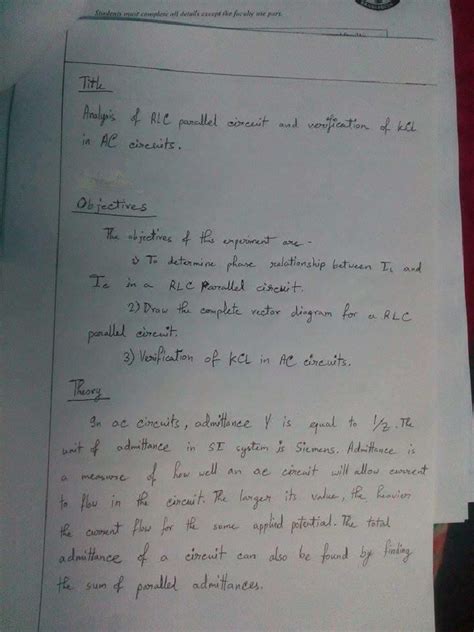 Students must complete all details except the faculty use part.
Title
Analysis of RLC parallel circuit and verification of KCL
in AC circuits.
Objectives
The objectives of this experiment are -
1) To determine phase relationship between IL and
Ic in a RLC Parallel circuit.
2) Draw the complete vector diagram for a RLC
parallel circuit.
3) Verification of KCL in AC circuits.
Theory
In ac circuits, admittance Y is equal to 1/Z. The
unit of admittance in SI system is Siemens. Admittance is
a measure of how well an ac circuit will allow current
to flow in the circuit. The larger its value, the heavier
the current flow for the same applied potential. The total
admittance of a circuit can also be found by finding
the sum of parallel admittances.